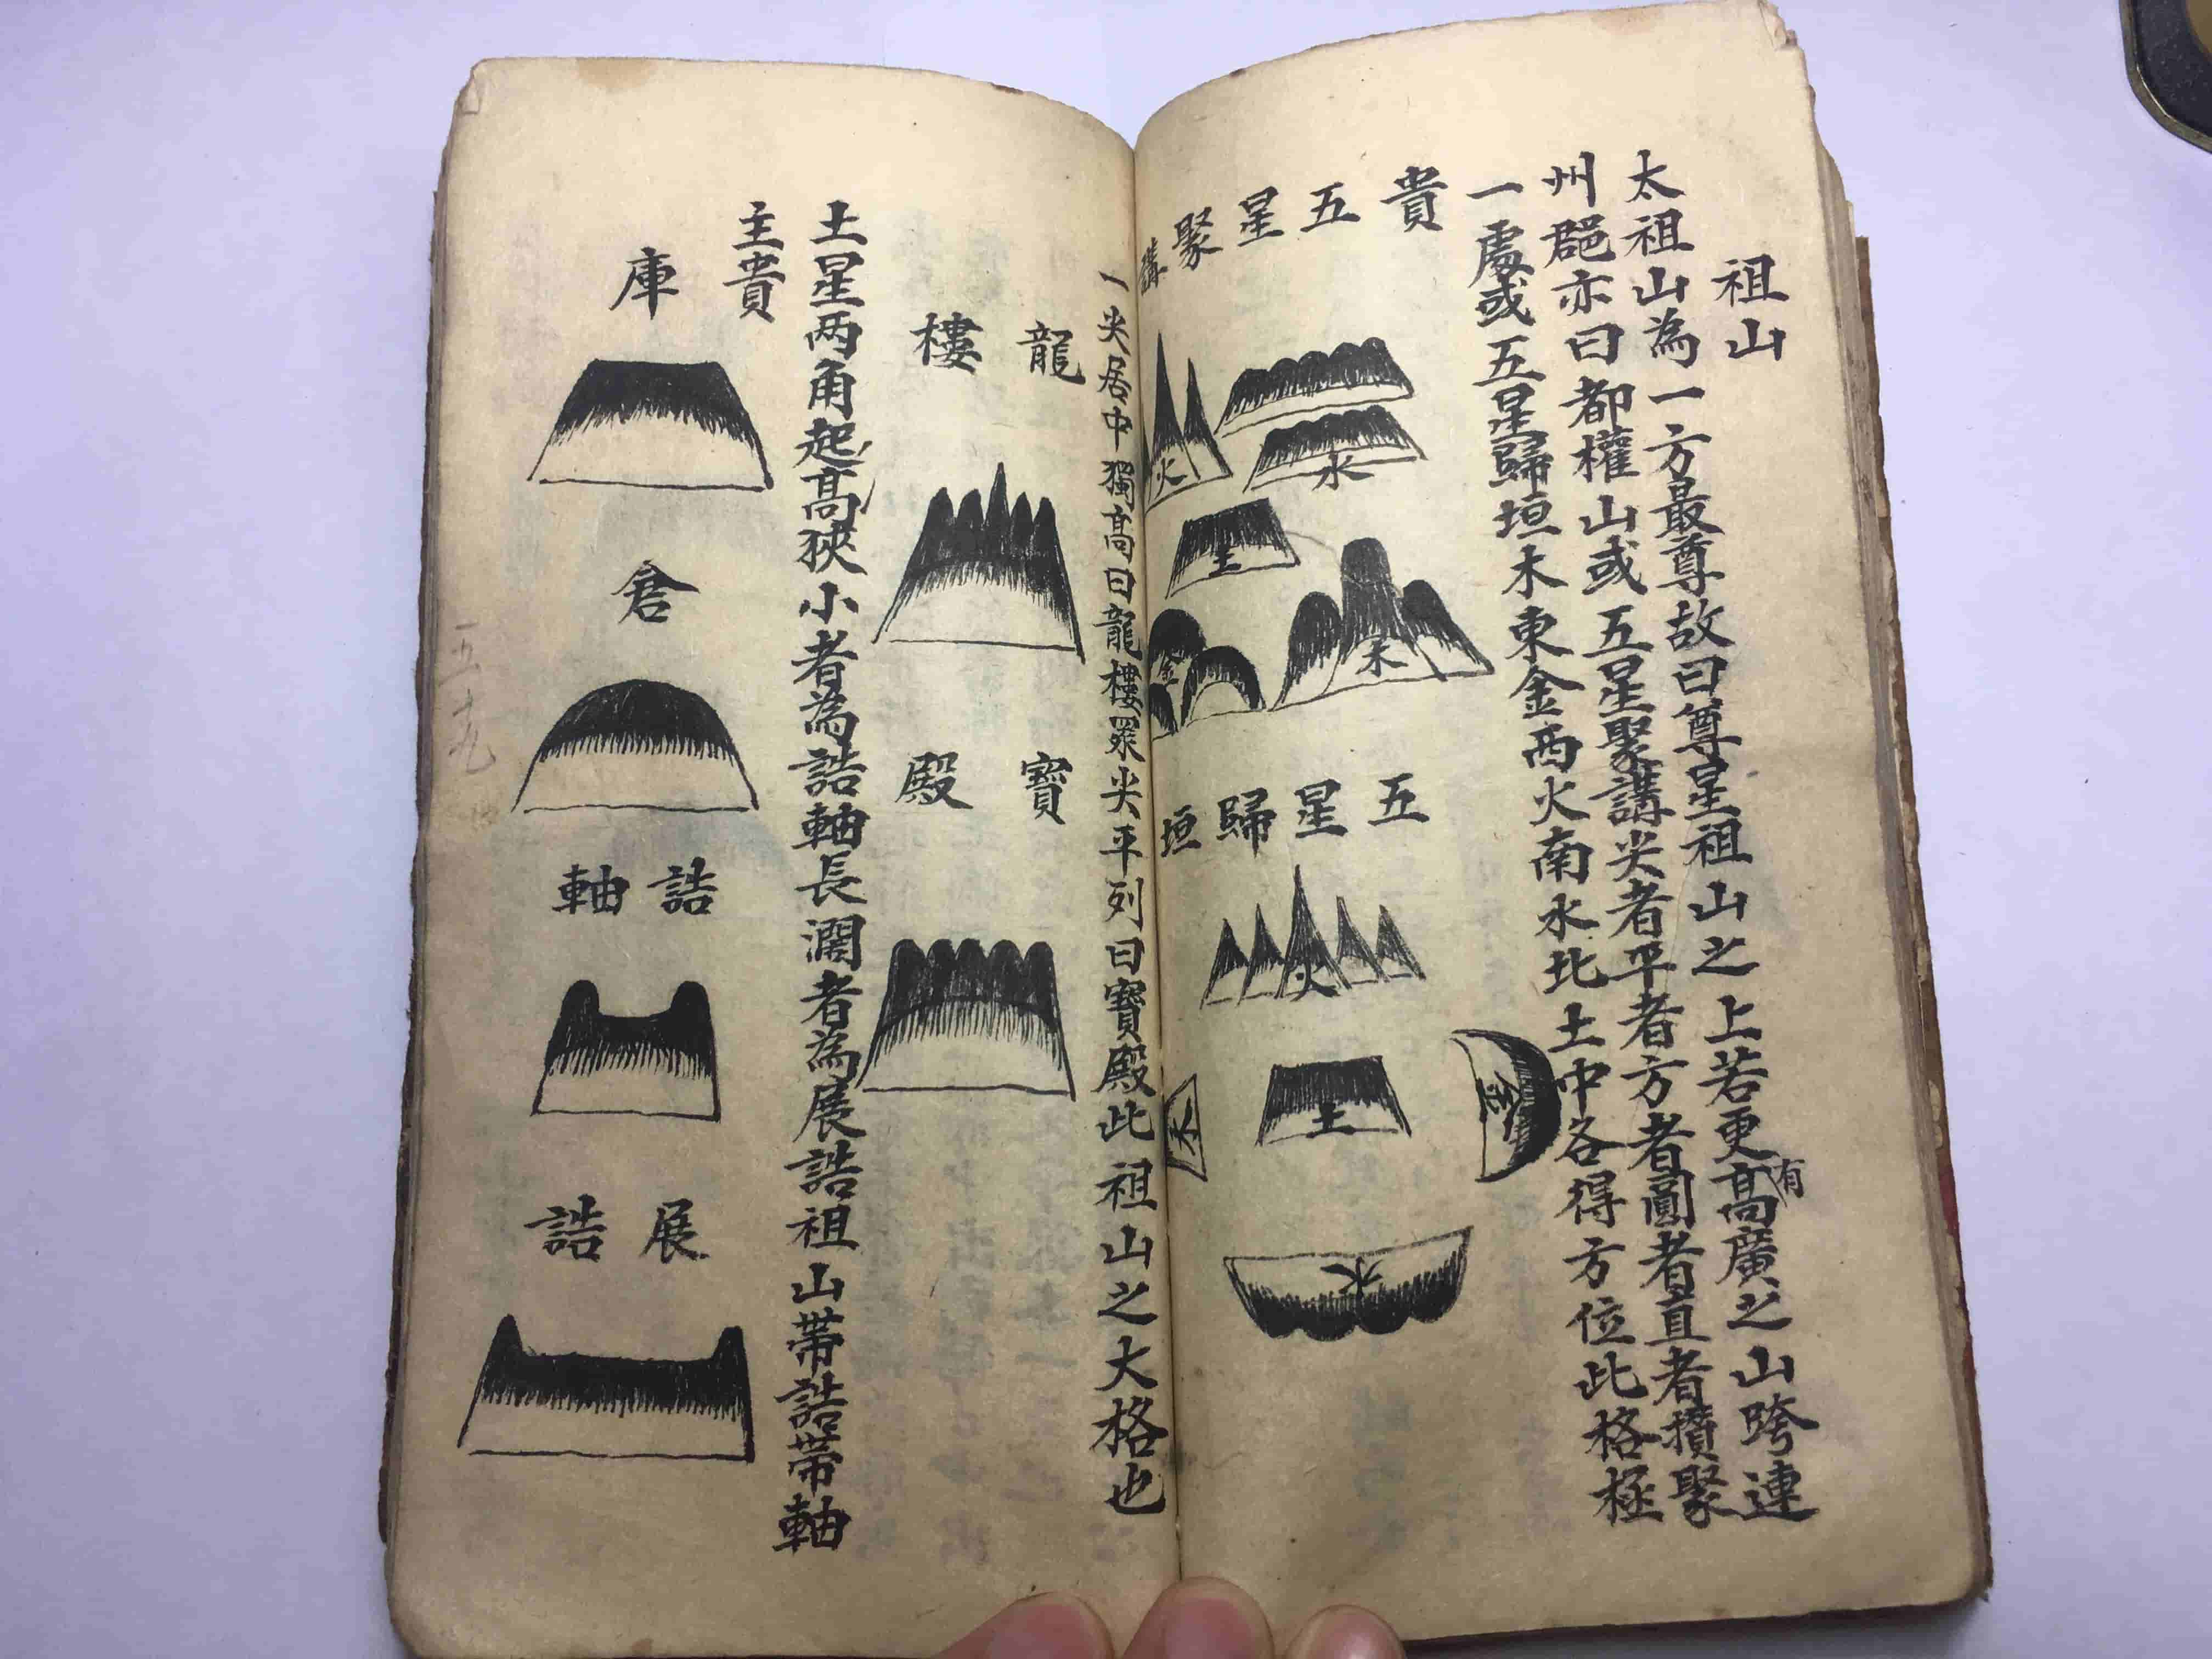 祖山
太祖山為一方最尊故曰尊星祖山之上若更有高廣之山跨連
州郡亦曰都權山或五星聚講尖者平者方者圓者直者攢聚
一處或五星歸垣木東金西火南水北土中各得方位此格極
貴
五星聚講
火
水
土
金
木
五星歸垣
火
木
土
金
水
一尖居中獨高曰龍樓眾尖平列曰寶殿此祖山之大格也
龍樓
寶殿
土星两角起高狹小者為誥軸長濶者為展誥祖山帶誥帶軸
主貴
庫
倉
誥軸
展誥